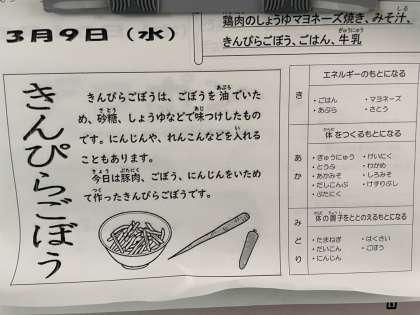 3月9日（水）
鶏肉のしょうゆマヨネーズ焼き、みそ汁、
きんぴらごぼう、ごはん、牛乳
きんぴらごぼう
きんぴらごぼうは、ごぼうを油でいた
め、砂糖、しょうゆなどで味つけしたもの
です。にんじんや、れんこんなどを入れる
こともあります。
今日は豚肉、ごぼう、にんじんをいため
て作ったきんぴらごぼうです。
エネルギーのもとになる
き
・ごはん ・マヨネーズ
・あぶら ・さとう
体をつくるもとになる
あか
・ぎゅうにゅう ・けいにく
・とうふ ・わかめ
・あかみそ ・しろみそ
・だしこんぶ ・けずりぶし
・ぶたにく
体の調子をととのえるもとになる
みどり
・たまねぎ ・はくさい
・だいこん ・ごぼう
・にんじん